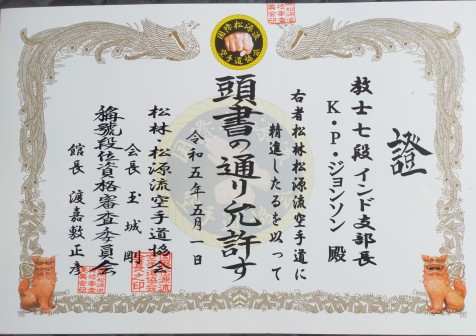 證
教士七段 インド支部長
K・P・ジョンソン 殿
右者松林松源流空手道に
精進したるを以って
頭書の通り允許す
令和五年五月一日
松林・松源流空手道協会
会長 玉城 剛
稱號段位資格審査委員会
館長 渡嘉敷正彦
国際松源流
空手道協会